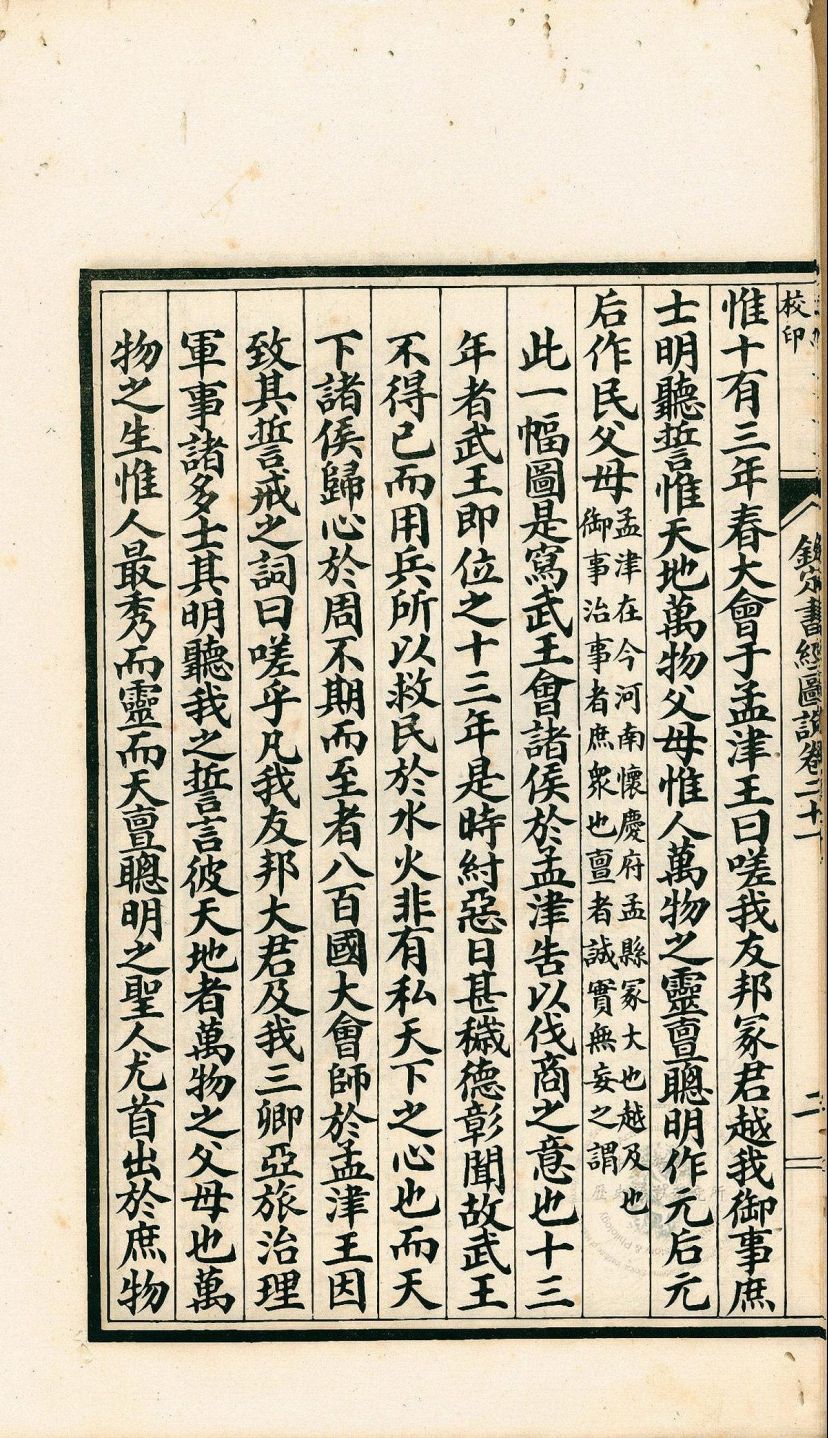 校印
欽定書經圖說卷二十一
二
惟十有三年春大會于孟津王曰嗟我友邦冢君越我御事庶
士明聽誓惟天地萬物父母惟人萬物之靈亶聰明作元后元
后作民父母孟津在今河南懷慶府孟縣冢大也越及也
御事治事者庶衆也亶者誠實無妄之謂
此一幅圖是寫武王會諸侯於孟津告以伐商之意也十三
年者武王即位之十三年是時紂惡日甚穢德彰聞故武王
不得已而用兵所以救民於水火非有私天下之心也而天
下諸侯歸心於周不期而至者八百國大會師於孟津王因
致其誓戒之詞曰嗟乎凡我友邦大君及我三卿亞旅治理
軍事諸多士其明聽我之誓言彼天地者萬物之父母也萬
物之生惟人最秀而靈而天亶聰明之聖人尤首出於庶物